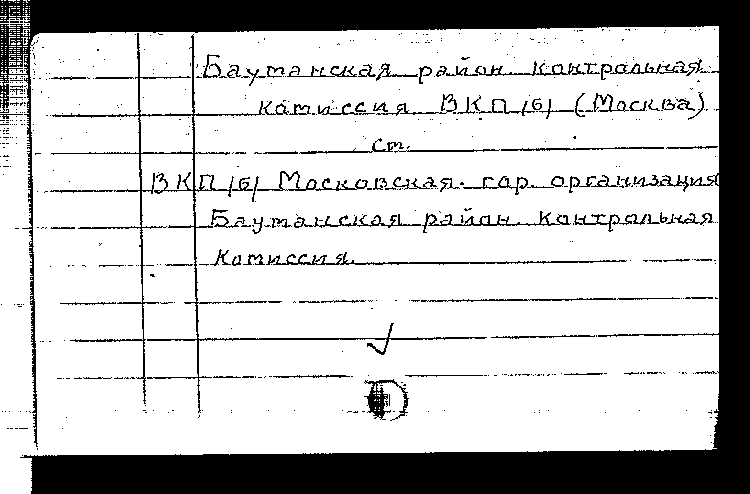 Баутанская район. контрольная
комиссия ВКП /б/ (Москва)
ст.
ВКП /б/ Московская. гор. организация
Баутанская район. контрольная
комиссия.